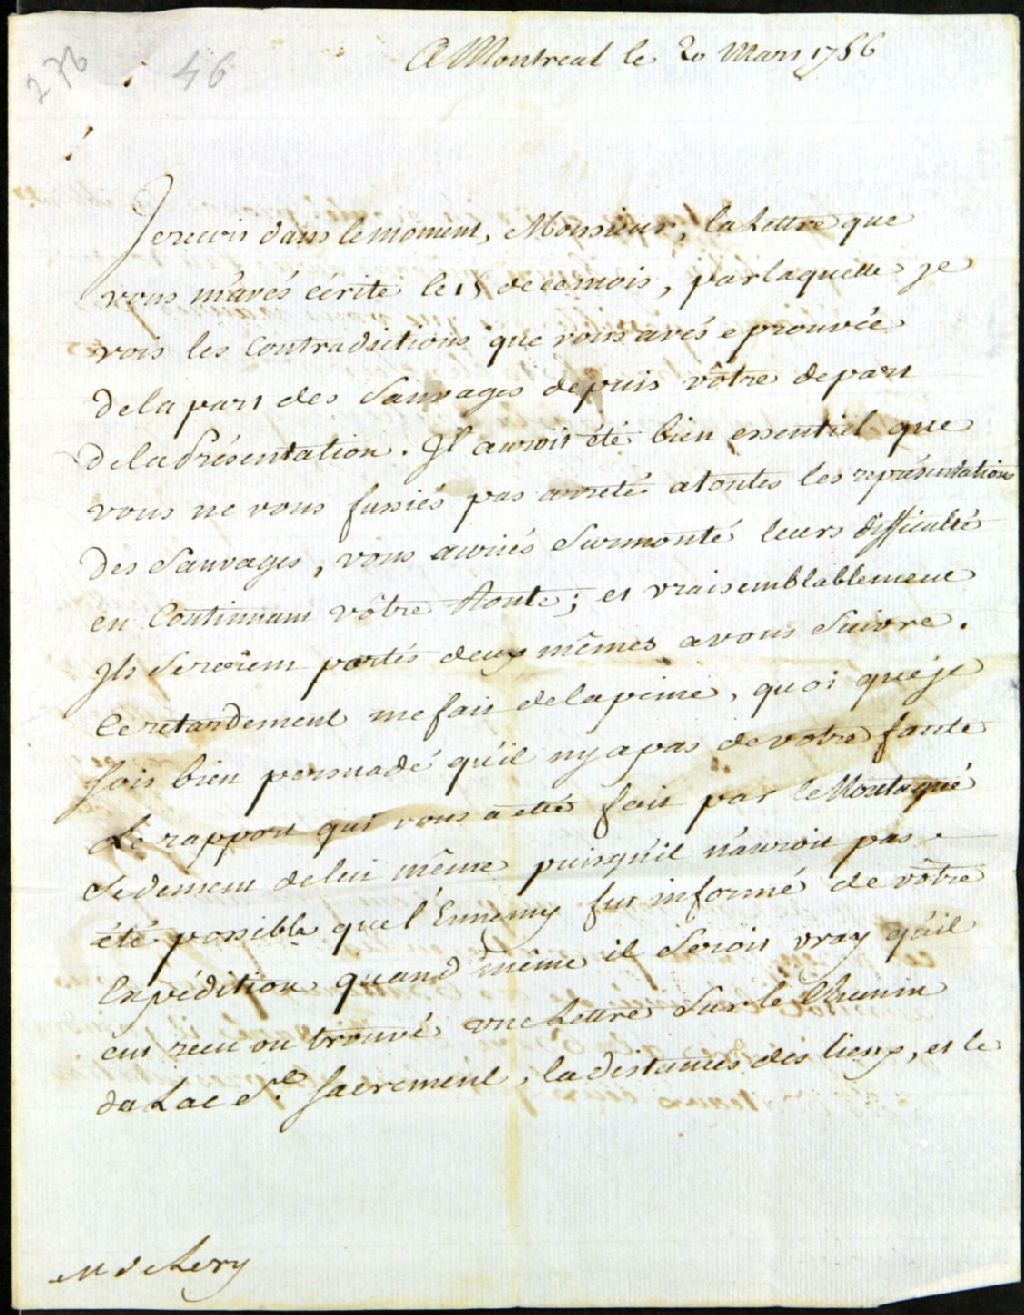 276
46
A Montreal le 20 Mars 1756
Je recois dans le moment, Monsieur, la Lettre que
vous m'avés écrite le 15 de ce mois, par laquelle je
vois les Contradictions que vous avés eprouvée
de la part des Sauvages depuis vôtre depart
de la Présentation. Il auroit été bien essentiel que
vous ne vous fussiés pas arreté a toutes les représentations
des Sauvages, vous auriés Surmonté leurs difficulté
en Continuant vôtre Route; et vraisemblablement
Ils Seroient portés deux mêmes a vous Suivre.
Ce retardement me fait de la peine, quoi que je
sois bien persuadé qu'il n'y a pas de votre faute
Le rapport qui vous a etté fait par le Montagué
Se dement de lui même puisqu'il n'auroit pas
été possible que l'Ennemy fut informé de vôtre
Expédition quand même il Seroit vray qu'il
eut recu ou trouvé une Lettre Sur le Chemin
du Lac St. Sacrement, la distances des lieux, et le
M de Lery